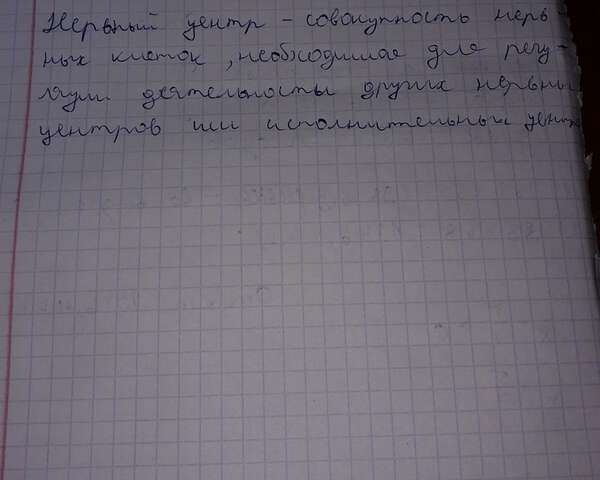 Нервный центр - совокупность нерв
ных клеток, необходимая для регу-
ляции деятельности других нервны
центров или исполнительных цент